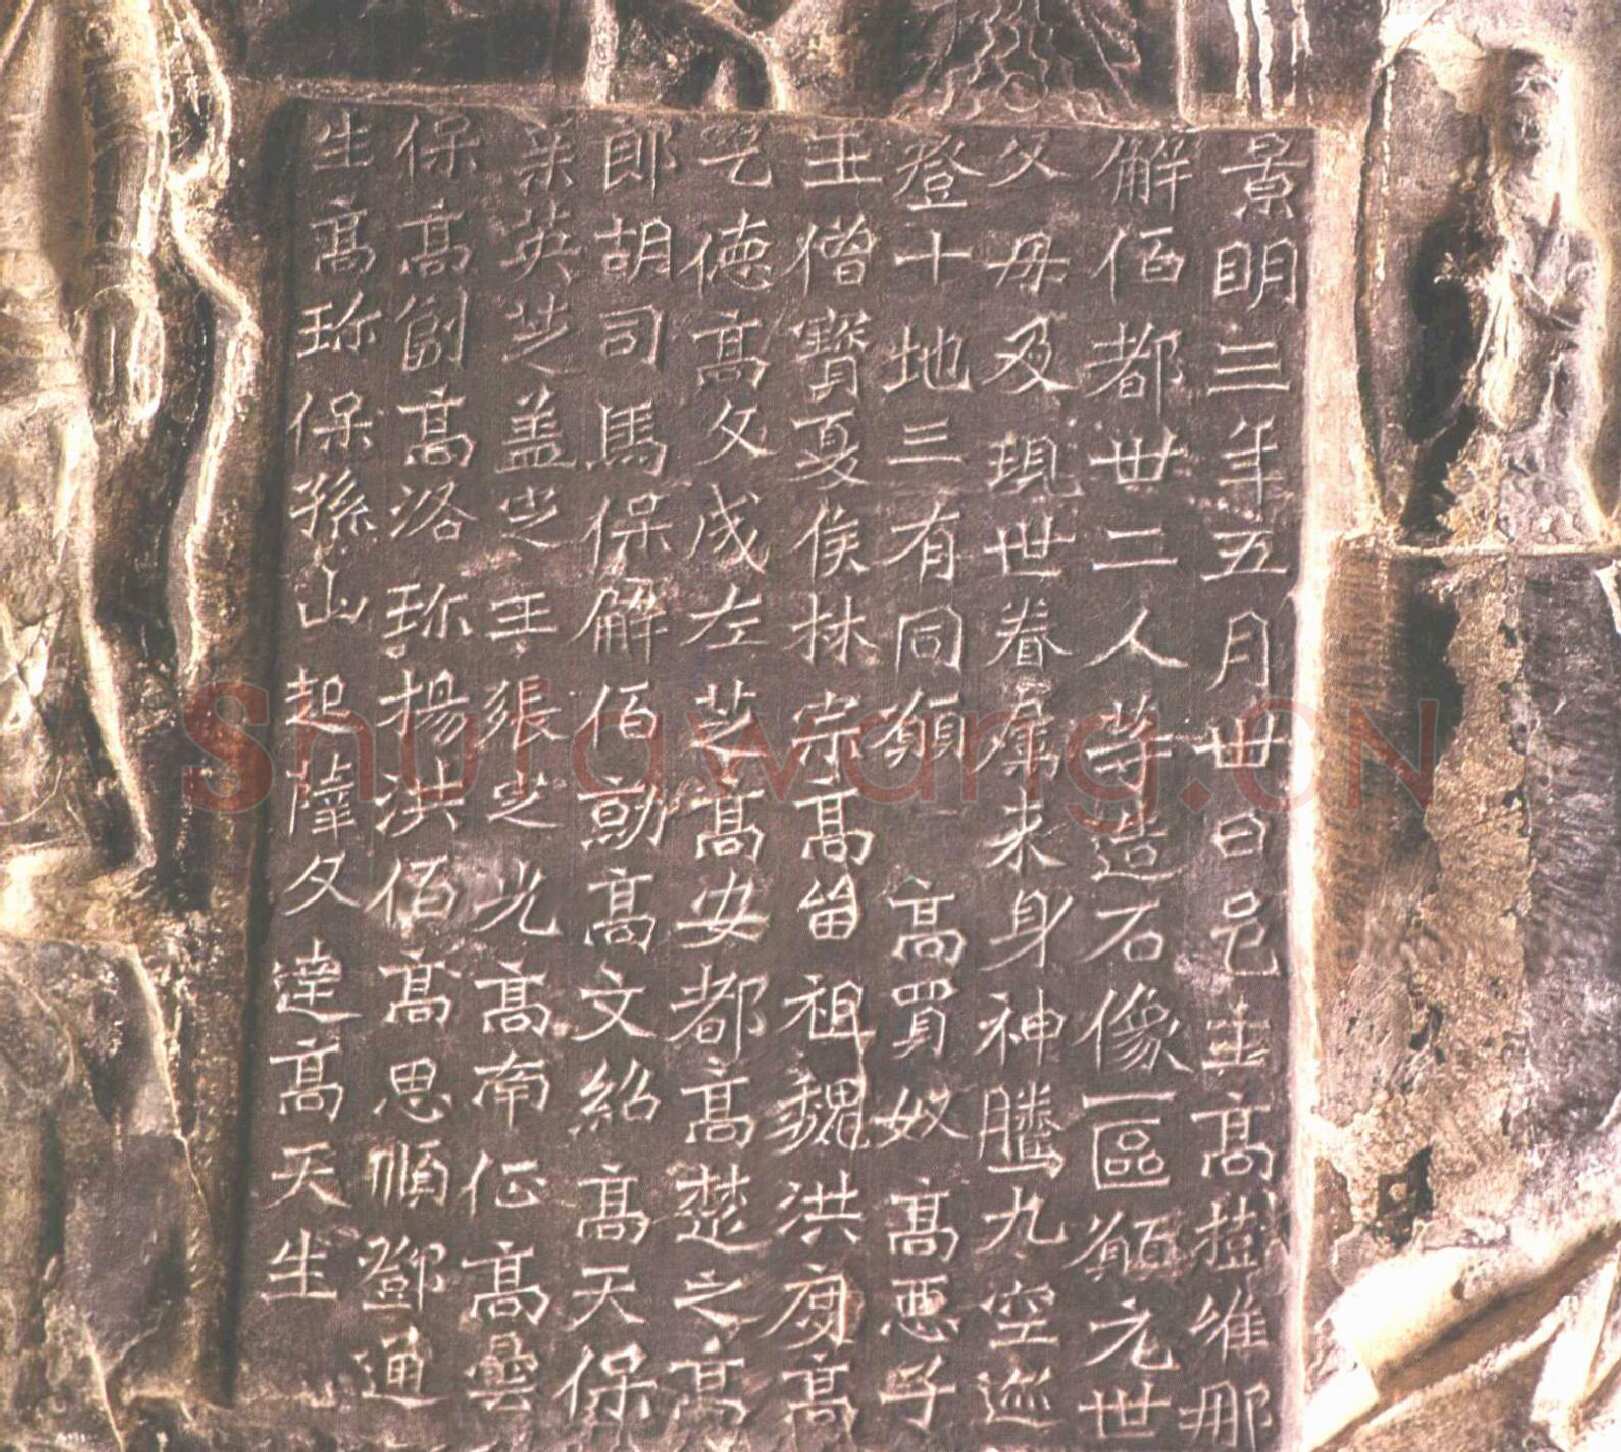 景明三年五月卅日邑主高樹維那
解佰都卅二人等造石像一區願元世
父母及現世眷屬来身神騰九空迊
登十地三有同願 高買奴高悪子
王僧寶夏侯林宗高留祖魏洪度高
乞德高文成左芝高安都高楚之高
郎胡司馬保解佰勍高文紹高天保
英芝盖之王張芝光高南征高曇
保高創高洛珎楊洪佰高思順鄧通
生高珎保孫山起薩文達高天生
Shufawang.CN